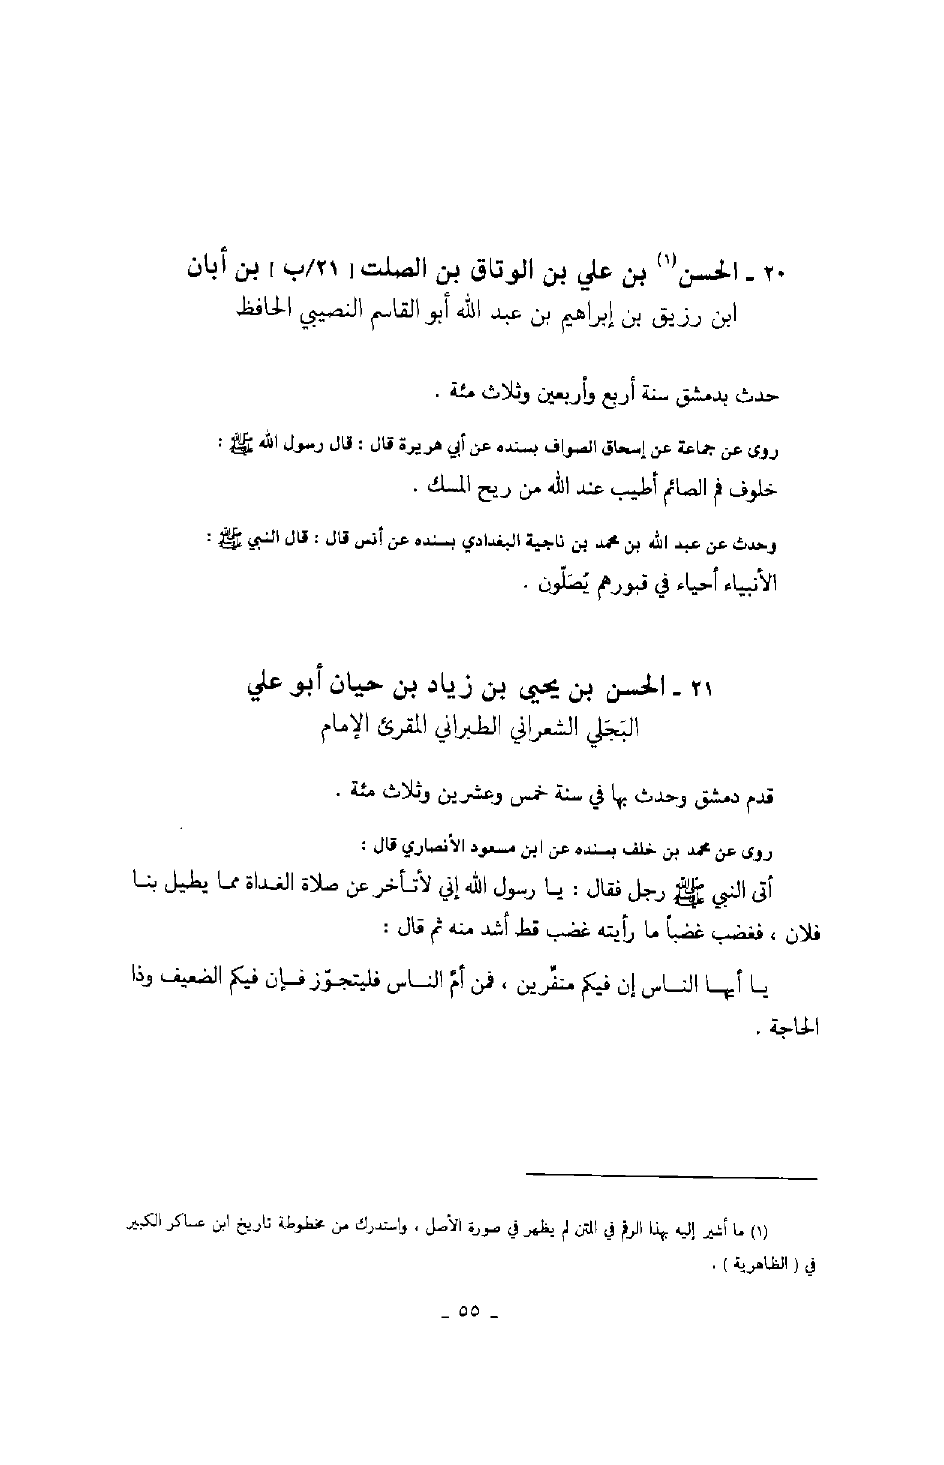 ٢٠ ـ الحسن(١) بن علي بن الوتاق بن الصلت [ ٢١/ب ] بن أبان
ابن رزيق بن إبراهيم بن عبد الله أبو القاسم النصيبي الحافظ
حدث بدمشق سنة أربع وأربعين وثلاث مئة .
روى عن جماعة عن إسحاق الصواف بسنده عن أبي هريرة قال : قال رسول الله ﷺ :
خلوف فم الصائم أطيب عند الله من ريح المسك .
وحدث عن عبد الله بن محمد بن ناجية البغدادي بسنده عن أنس قال : قال النبي ﷺ :
الأنبياء أحياء في قبورهم يُصَلّون .
٢١ ـ الحسن بن يحيى بن زياد بن حيان أبو علي
البَجَلي الشعراني الطبراني المقرئ الإمام
قدم دمشق وحدث بها في سنة خمس وعشرين وثلاث مئة .
روى عن محمد بن خلف بسنده عن ابن مسعود الأنصاري قال :
أتى النبي ﷺ رجل فقال : يا رسول الله إني لأتأخر عن صلاة الغداة مما يطيل بنا
فلان ، فغضب غضباً ما رأيته غضب قط أشد منه ثم قال :
يا أيها الناس إن فيكم منفّرين ، فمن أمّ الناس فليتجوّز فإن فيكم الضعيف وذا
الحاجة .
(١) ما أشير إليه بهذا الرقم في المتن لم يظهر في صورة الأصل ، واستدرك من مخطوطة تاريخ ابن عساكر الكبير
في ( الظاهرية ) .
ـ ٥٥ ـ